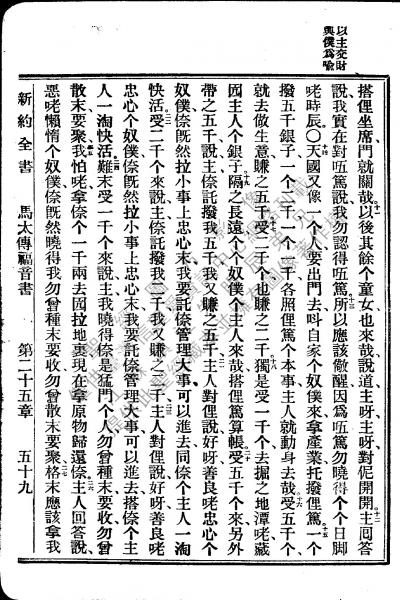 以主交財
與僕為喻
搭俚坐席門就關哉以後其餘个童女也來哉說道主呀主呀對伲開開主囘答
說我實在對唔篤說我勿認得唔篤所以應該儆醒因為唔篤勿曉得个个日脚
咾時辰〇天國又像一个人要出門去呌自家个奴僕來拿產業托撥俚篤一个
撥五千銀子一个二千一个一千各照俚篤个本事主人就動身去哉受五千个
就去做生意賺之五千受二千个也賺之二千獨是受一千个去掘之地潭咾藏
囥主人个銀子隔之長遠个个奴僕个主人來哉搭俚篤算帳受五千个來另外
帶之五千說主倷託撥我五千我又賺之五千主人對俚說好呀善良咾忠心个
奴僕倷旣然拉小事上忠心末我要託倷管理大事可以進去同倷个主人一淘
快活受二千个來說主倷託撥我二千我又賺之二千主人對俚說好呀善良咾
忠心个奴僕倷旣然拉小事上忠心末我要託倷管理大事可以進去搭倷个主
人一淘快活難末受一千个來說主我曉得倷是猛門个人勿曾種末要收勿曾
散末要聚我怕咾拿倷个一千兩去囥拉地裏現在拿原物歸還倷主人囘答說
惡咾懶惰个奴僕倷旣然曉得我勿曾種末要收勿曾散末要聚格末應該拿我
新約全書 馬太傳福音書 第二十五章 五十九